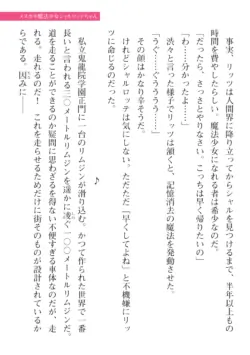 メカガネ魔法少女シャルロッテちゃん
事実、リッツは人間界に降り立ってからシャルを見つけるまで、半年以上もの
時間を費やしたらしい。魔法少女になれる者は希少なのだ。
「だったら、さっさとやりなさいな。こっちは早く帰りたいの」
「わ……分かったよ」
渋々と言った様子でリッツは頷くと、記憶消去の魔法を発動させた。
「うぐ……ぐうううう……」
その顔はかなり辛そうだ。
けどシャルロッテは気にしない。ただ、「早くしてよね」と不機嫌にリッ
ツに命じるのだった。
♪
私立鬼龍院学園正門に、一台のリムジンが滑り込む。かつて作られた世界で一番
長いと言われる三〇メートルリムジンを遥かに凌ぐ一〇〇メートルリムジンだ。
走れるのかどうなのか疑問に思わざるを得ない不便すぎる車体なのだが、走
れる。走れるのだ！ これを走らせるためだけに街そのものが設計されているか
らである。因みに――